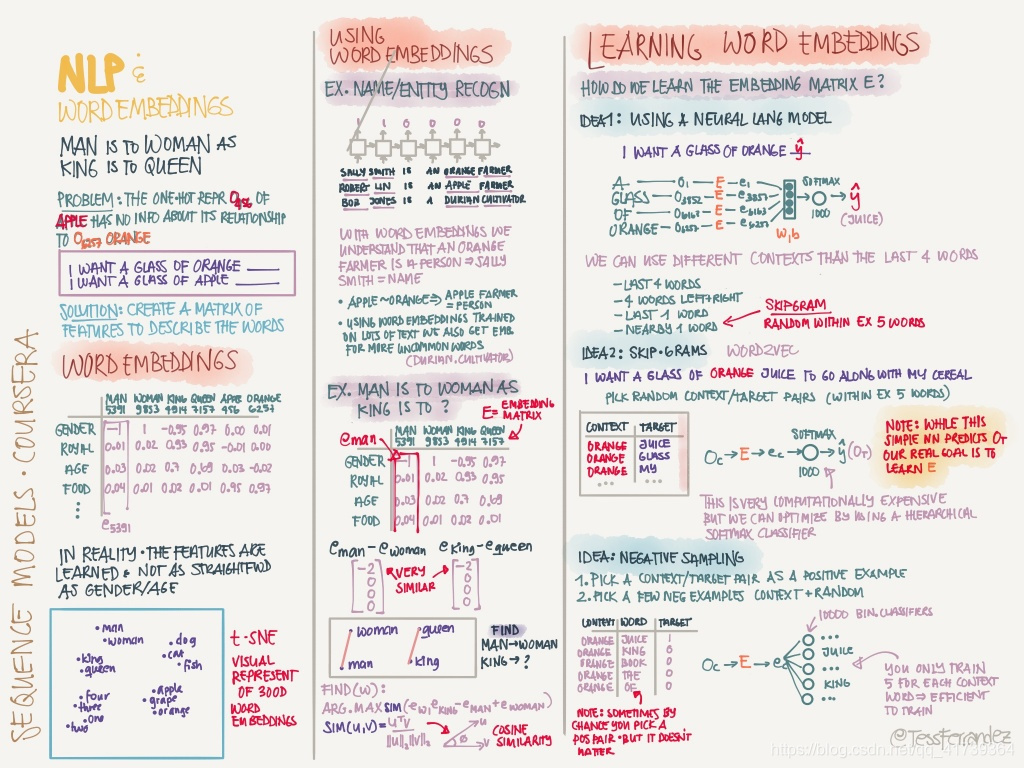 SEQUENCE MODELS · COURSERA
NLP &
WORD EMBEDDINGS
MAN IS TO WOMAN AS
KING IS TO QUEEN
PROBLEM: THE ONE-HOT REPR O456 OF
APPLE HAS NO INFO ABOUT ITS RELATIONSHIP
TO O6257 ORANGE
I WANT A GLASS OF ORANGE ____
I WANT A GLASS OF APPLE ____
SOLUTION: CREATE A MATRIX OF
FEATURES TO DESCRIBE THE WORDS
WORD EMBEDDINGS
MAN WOMAN KING QUEEN APPLE ORANGE
5391 9853 4914 7157 456 6257
GENDER -1 1 -0.95 0.97 0.00 0.01
ROYAL 0.01 0.02 0.93 0.95 -0.01 0.00
AGE 0.03 0.02 0.7 0.69 0.03 -0.02
FOOD 0.04 0.01 0.02 0.01 0.95 0.97
e5391
IN REALITY · THE FEATURES ARE
LEARNED & NOT AS STRAIGHTFWD
AS GENDER/AGE
man
woman
dog
king
cat
queen
fish
four
apple
three
grape
one
orange
two
t-SNE
VISUAL
REPRESENT
OF 300D
WORD
EMBEDDINGS
USING
WORD EMBEDDINGS
EX. NAME/ENTITY RECOGN
1 1 0 0 0 0
SALLY SMITH IS AN ORANGE FARMER
ROBERT LIN IS AN APPLE FARMER
BOB JONES IS A DURIAN CULTIVATOR
WITH WORD EMBEDDINGS WE
UNDERSTAND THAT AN ORANGE
FARMER IS A PERSON ⇒ SALLY
SMITH = NAME
• APPLE ~ORANGE ⇒ APPLE FARMER
= PERSON
• USING WORD EMBEDDINGS TRAINED
ON LOTS OF TEXT WE ALSO GET EMB.
FOR MORE UNCOMMON WORDS
(DURIAN, CULTIVATOR)
EX. MAN IS TO WOMAN AS
KING IS TO ?
E = EMBEDDING
MATRIX
eman
MAN WOMAN KING QUEEN
5391 9853 4914 7157
GENDER -1 1 -0.95 0.97
ROYAL 0.01 0.02 0.93 0.95
AGE 0.03 0.02 0.7 0.69
FOOD 0.04 0.01 0.02 0.01
eman - ewoman eking - equeen
-2 -2
0 0
0 0
0 0
VERY
SIMILAR
woman queen
man king
FIND
MAN→WOMAN
KING→?
FIND(W):
ARG.MAX SIM(ew, eking - eman + ewoman)
SIM(u,v) = uTv
||u||2 ||v||2
u
ø
v
COSINE
SIMILARITY
LEARNING WORD EMBEDDINGS
HOW DO WE LEARN THE EMBEDDING MATRIX E?
IDEA1: USING A NEURAL LANG MODEL
I WANT A GLASS OF ORANGE ŷ
A — O1 — E — e1
GLASS — O3852 — E — e3852
OF — O6163 — E — e6163
ORANGE — O6257 — E — e6257
W,b
SOFTMAX
1000
ŷ
(JUICE)
WE CAN USE DIFFERENT CONTEXTS THAN THE LAST 4 WORDS
- LAST 4 WORDS
- 4 WORDS LEFT+RIGHT
- LAST 1 WORD
- NEARBY 1 WORD
SKIPGRAM
RANDOM WITHIN EX 5 WORDS
IDEA2: SKIP-GRAMS WORD2VEC
I WANT A GLASS OF ORANGE JUICE TO GO ALONG WITH MY CEREAL
PICK RANDOM CONTEXT/TARGET PAIRS (WITHIN EX 5 WORDS)
CONTEXT TARGET
ORANGE JUICE
ORANGE GLASS
ORANGE MY
... ...
Oc → E → ec → ŷ (OT)
SOFTMAX
1000
NOTE: WHILE THIS
SIMPLE NN PREDICTS OT
OUR REAL GOAL IS TO
LEARN E
THIS IS VERY COMPUTATIONALLY EXPENSIVE
BUT WE CAN OPTIMIZE BY USING A HIERARCHICAL
SOFTMAX CLASSIFIER
IDEA: NEGATIVE SAMPLING
1. PICK A CONTEXT/TARGET PAIR AS A POSITIVE EXAMPLE
2. PICK A FEW NEG EXAMPLES CONTEXT + RANDOM
CONTEXT WORD TARGET
ORANGE JUICE 1
ORANGE KING 0
ORANGE BOOK 0
ORANGE THE 0
ORANGE OF 0
NOTE: SOMETIMES BY
CHANCE YOU PICK A
POS PAIR · BUT IT DOESN'T
MATTER
Oc → E → ec
10000 BIN. CLASSIFIERS
...
JUICE
...
KING
...
YOU ONLY TRAIN
5 FOR EACH CONTEXT
WORD ⇒ EFFICIENT
TO TRAIN
@TessFerrandez